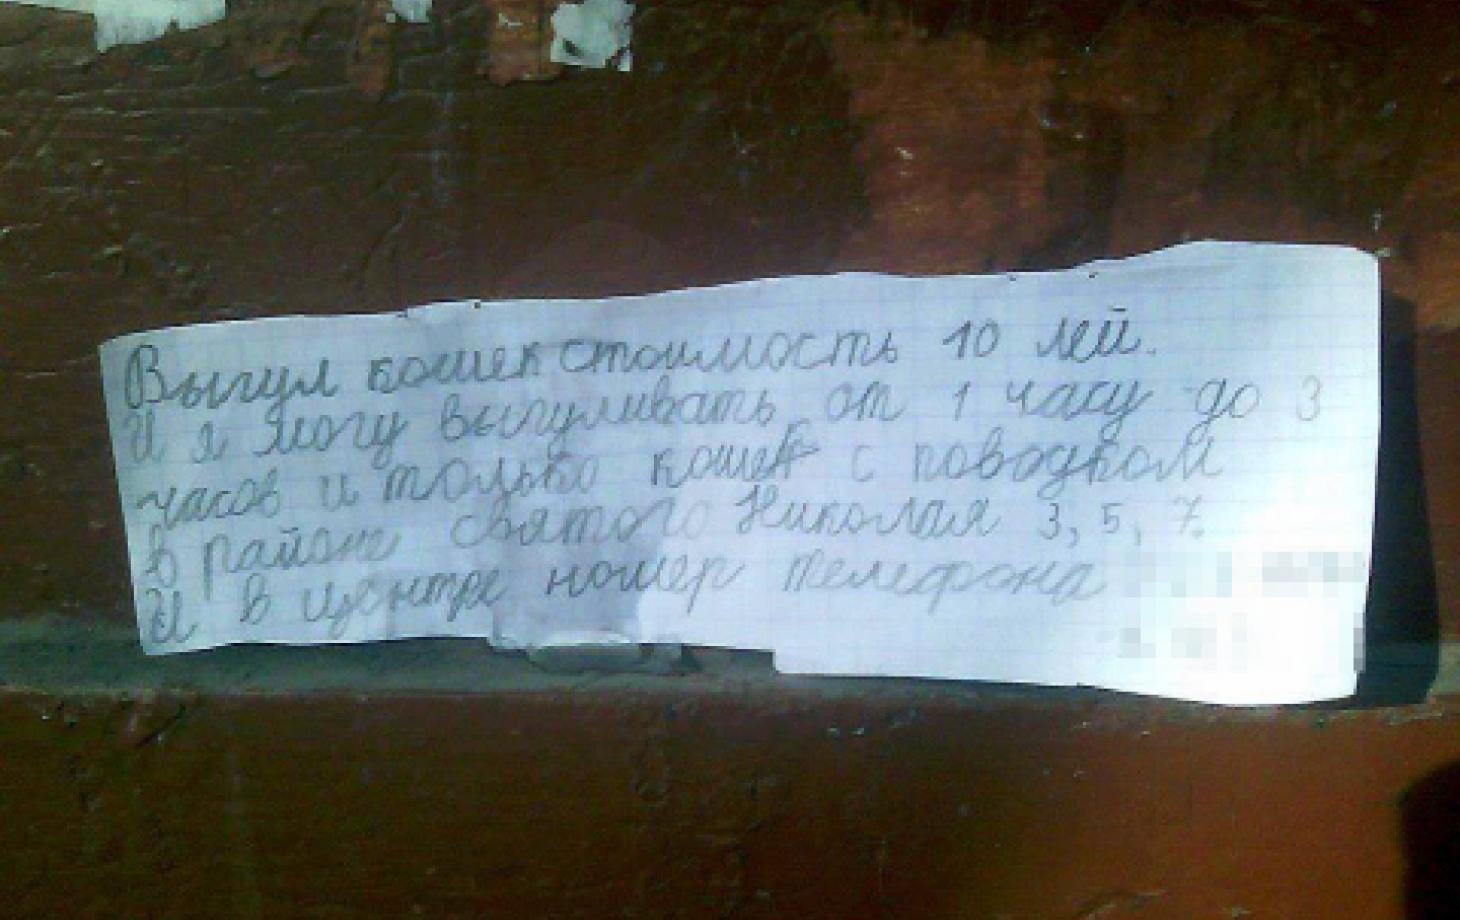 Выгул кошек стоимость 10 лей.
И я могу выгуливать от 1 часу до 3
часов и только кошек с поводком
в районе святого Николая 3, 5, 7.
И в центре номер телефона